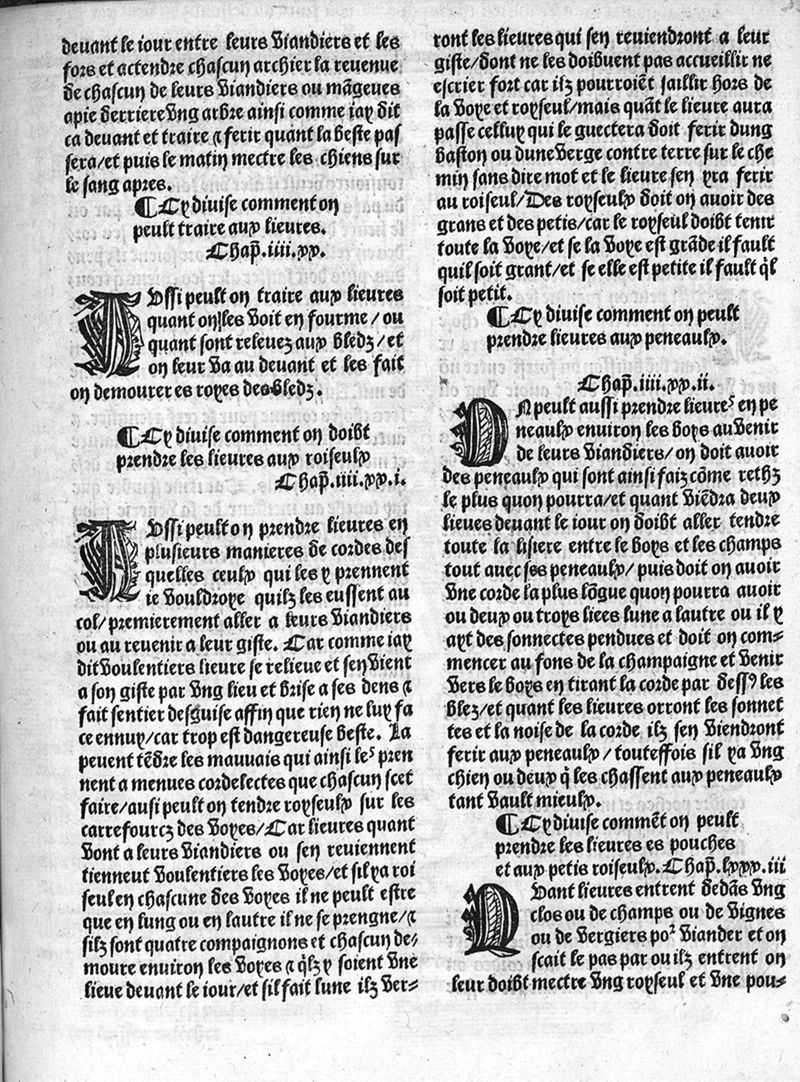 deuant le iour entre leurs viandiers et les
fors et actendre chascun archier la reuenue
de chascun de leurs viandiers ou mãgeues
apie derriere vng arbre ainsi comme iay dit
ca deuant et traire ⁊ ferir quant la beste pas
sera/et puis le matin mectre les chiens sur
le sang apres.
¶ Cy diuise comment on
peult traire aux lieures.
Chap̃.iiii.xx.
AVssi peult on traire aux lieures
quant on les voit en fourme/ou
quant sont releuez aux bledz/et
on leur va au deuant et les fait
on demourer es royes des bledz.
¶ Cy diuise comment on doibt
prendre les lieures aux roiseulx
Chap̃.iiii.xx.i.
AVssi peult on prendre lieures en
plusieurs manieres de cordes des
quelles ceulx qui les y prennent
ie vouldroye quilz les eussent au
col/premierement aller a leurs viandiers
ou au reuenir a leur giste. Car comme iay
dit voulentiers lieure se relieue et sen vient
a son giste par vng lieu et brise a ses dens ⁊
fait sentier desguise affin que rien ne luy fa
ce ennuy/car trop est dangereuse beste. La
peuent tẽdre les mauuais qui ainsi leˢ pren
nent a menues cordelectes que chascun scet
faire/ausi peult on tendre royseulx sur les
carrefourcz des voyes/Car lieures quant
vont a leurs viandiers ou sen reuiennent
tiennent voulentiers les voyes/et sil ya roi
seul en chascune des voyes il ne peult estre
que en lung ou en lautre il ne se prengne/⁊
silz sont quatre compaignons et chascun de-
moure enuiron les voyes ⁊ q̃lz y soient vne
lieue deuant le iour/et sil fait lune ilz ver-
ront les lieures qui sen reuiendront a leur
giste/dont ne les doibuent pas accueillir ne
escrier fort car ilz pourroiẽt saillir hors de
la voye et royseul/mais quãt le lieure aura
passe celluy qui le guectera doit ferir dung
baston ou dune verge contre terre sur le che
min sans dire mot et le lieure sen yra ferir
au roiseul/Des royseulx doit on auoir des
grans et des petis/car le royseul doibt tenir
toute la voye/et se la voye est grãde il fault
quil soit grant/et se elle est petite il fault q̃l
soit petit.
¶ Cy diuise comment on peult
prendre lieures aux peneaulx.
Chap̃.iiii.xx.ii.
ON peult aussi prendre lieureˢ en pe
neaulx enuiron les boys au venir
de leurs viandiers/on doit auoir
des peneaulx qui sont ainsi faiz cõme rethz
le plus quon pourra/et quant viẽdra deux
lieues deuant le iour on doibt aller tendre
toute la lisiere entre le boys et les champs
tout auec ses peneaulx/puis doit on auoir
vne corde la plus lõgue quon pourra auoir
ou deux ou troys liees lune a lautre ou il y
ayt des sonnectes pendues et doit on com-
mencer au fons de la champaigne et venir
vers le boys en tirant la corde par dessꝰ les
blez/et quant les lieures orront les sonnet
tes et la noise de la corde ilz sen viendront
ferir aux peneaulx/touteffois sil ya vng
chien ou deux q̃ les chassent aux peneaulx
tant vault mieulx.
¶ Cy diuise commẽt on peult
prendre les lieures es pouches
et aux petis roiseulx. Chap̃.lxxx.iii
QVant lieures entrent dedãs vng
clos ou de champs ou de vignes
ou de vergiers poᷣ viander et on
scait le pas par ou ilz entrent on
leur doibt mectre vng royseul et vne pou-